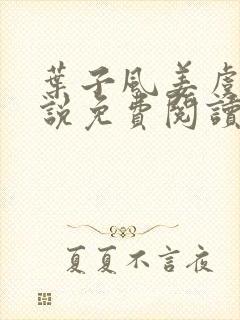 葉子風姜虞
說免費閱讀
夏夏不言夜